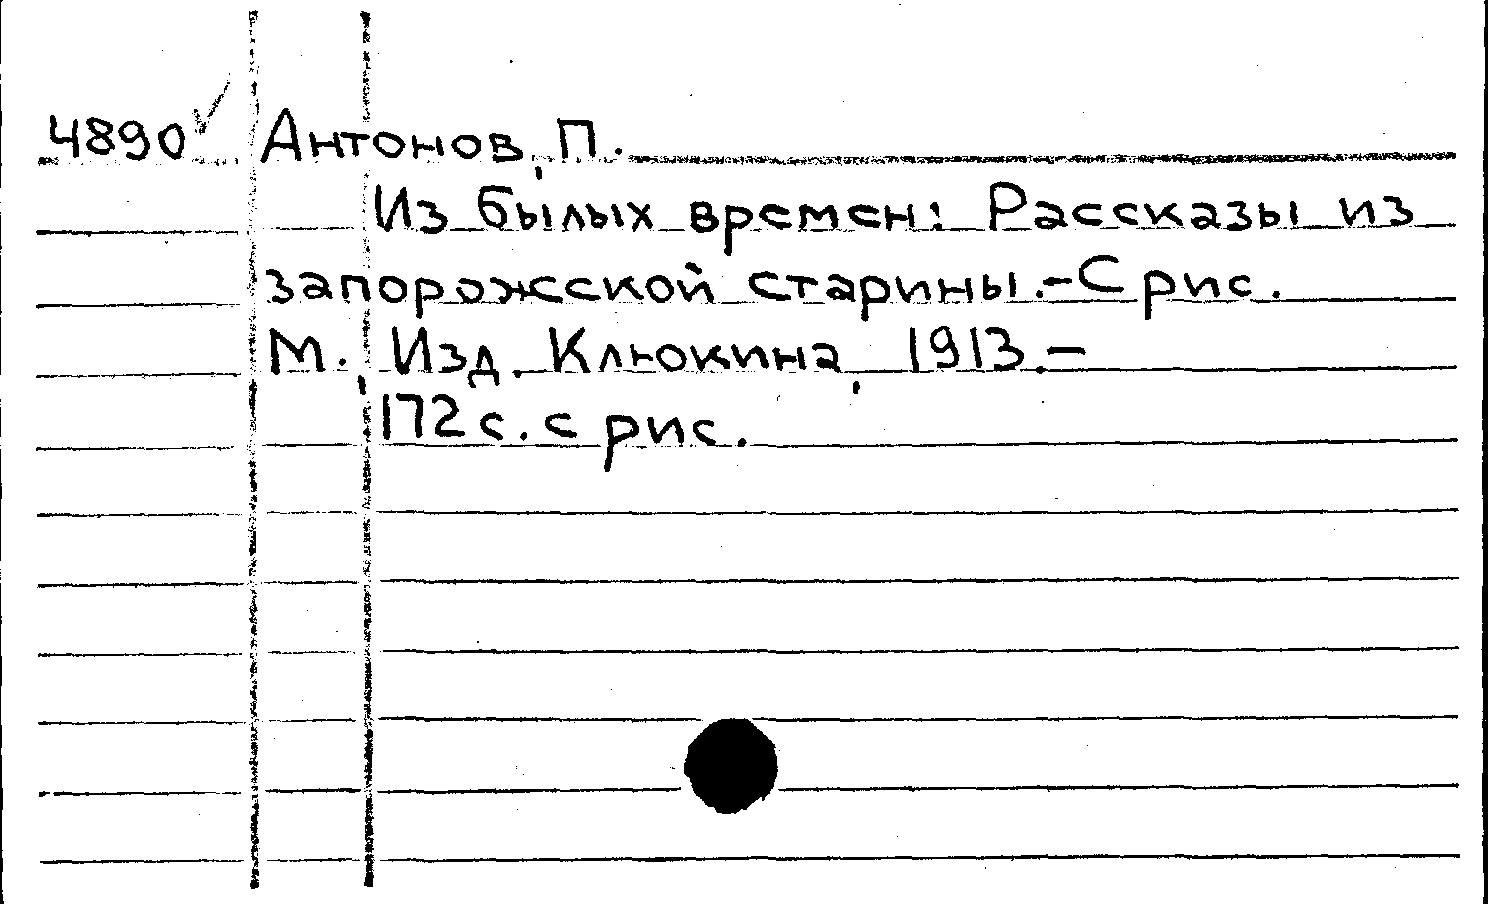 4890 Антонов, П.
Из былых времен: Рассказы из
запорожсской старины.-С рис.
М., Изд. Клюкина, 1913.-
172 с. с рис.